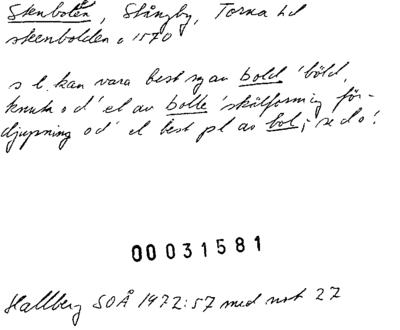 Skenbolen, Stångby, Torna hd
skenbolden o 1570
s l. kan vara best sg av bold 'böld,
knuta o d' el av bolle 'skålformig för-
djupning o d' el best pl av bol; se do!
00031581
Hallberg SOÅ 1972:57 med not 27